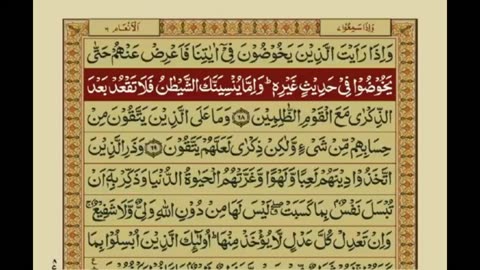 وَاِذَا سَمِعُوْا ٧
الْاَنْعَام ٦
وَاِذَا رَاَيْتَ الَّذِيْنَ يَخُوْضُوْنَ فِيْٓ اٰيٰتِنَا فَاَعْرِضْ عَنْهُمْ حَتّٰى
يَخُوْضُوْا فِيْ حَدِيْثٍ غَيْرِهٖ ؕ وَاِمَّا يُنْسِيَنَّكَ الشَّيْطٰنُ فَلَا تَقْعُدْ بَعْدَ
الذِّكْرٰى مَعَ الْقَوْمِ الظّٰلِمِيْنَ ﴿٦٨﴾ وَمَا عَلَى الَّذِيْنَ يَتَّقُوْنَ مِنْ
حِسَابِهِمْ مِّنْ شَيْءٍ وَّلٰكِنْ ذِكْرٰى لَعَلَّهُمْ يَتَّقُوْنَ ﴿٦٩﴾ وَذَرِ الَّذِيْنَ
اتَّخَذُوْا دِيْنَهُمْ لَعِبًا وَّلَهْوًا وَّغَرَّتْهُمُ الْحَيٰوةُ الدُّنْيَا وَذَكِّرْ بِهٖٓ اَنْ
تُبْسَلَ نَفْسٌۢ بِمَا كَسَبَتْ ۖ لَيْسَ لَهَا مِنْ دُوْنِ اللّٰهِ وَلِيٌّ وَّلَا شَفِيْعٌ ۚ
وَاِنْ تَعْدِلْ كُلَّ عَدْلٍ لَّا يُؤْخَذْ مِنْهَا ؕ اُولٰٓئِكَ الَّذِيْنَ اُبْسِلُوْا بِمَا